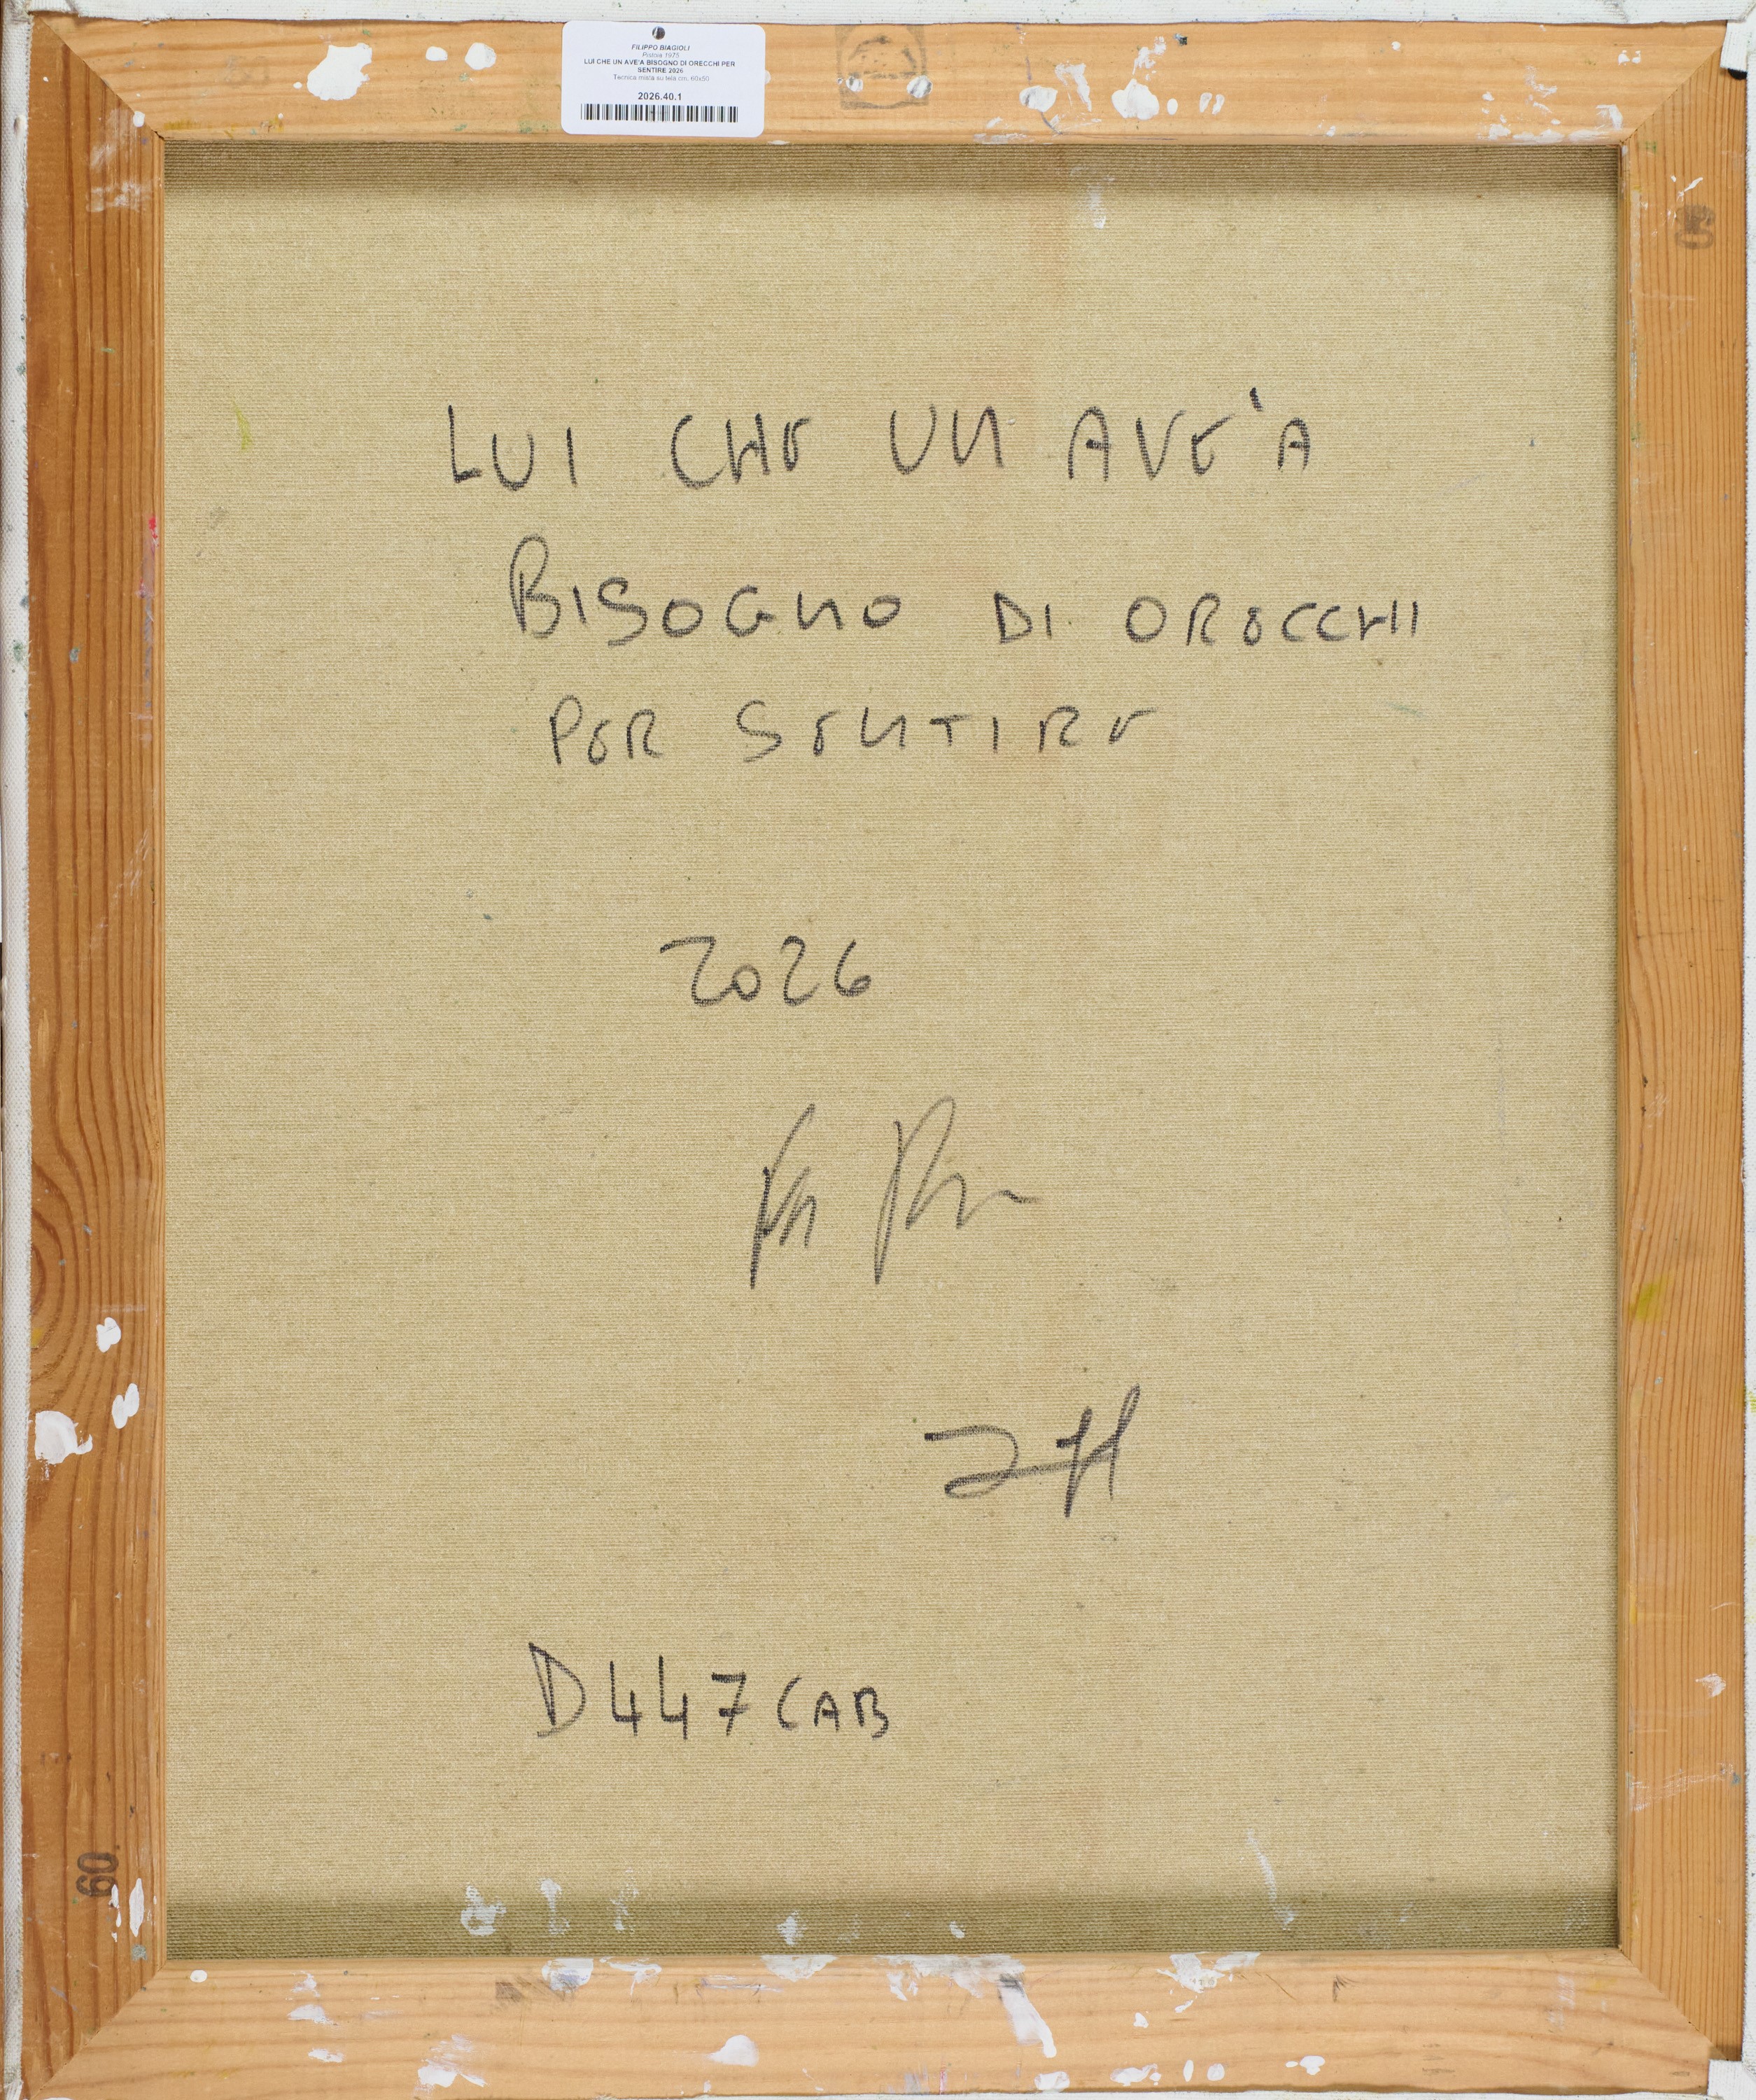 FILIPPO BIAGIOLI
Pistoia 1975
LUI CHE UN AVE'A BISOGNO DI ORECCHI PER
SENTIRE 2026
Tecnica mista su tela cm. 60x50
2026.40.1
50
LUI CHE UN AVE'A
BISOGNO DI ORECCHI
PER SENTIRE
2026
D447CAB
60